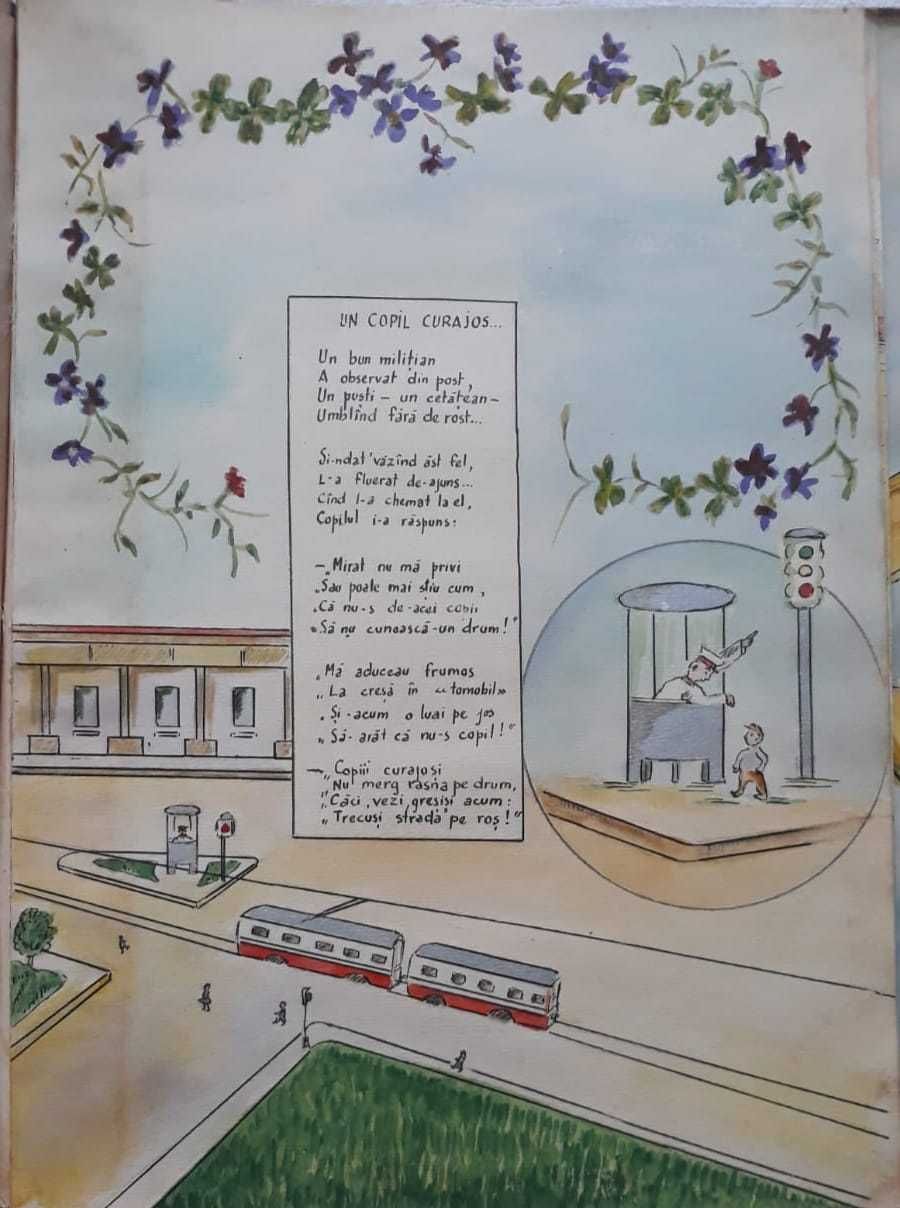 UN COPIL CURAJOS...
Un bun milițian
A observat din post,
Un puști – un cetățean –
Umblînd fără de rost...
Și-ndat' văzînd ăst fel,
L-a fluerat de-ajuns...
Cînd l-a chemat la el,
Copilul i-a răspuns:
–„Mirat nu mă privi
„Sau poate mai știu cum,
„Că nu-s de-acei copii
„Să nu cunoască-un drum!"
„Mă aduceau frumos
„La creșă în «tomobil»
„Și-acum o luai pe jos
„Să-arăt că nu-s copil!"
–„Copiii curajoși
„Nu merg rasna pe drum,
„Căci, vezi, greșiși acum:
„Trecuși strada pe roș!"